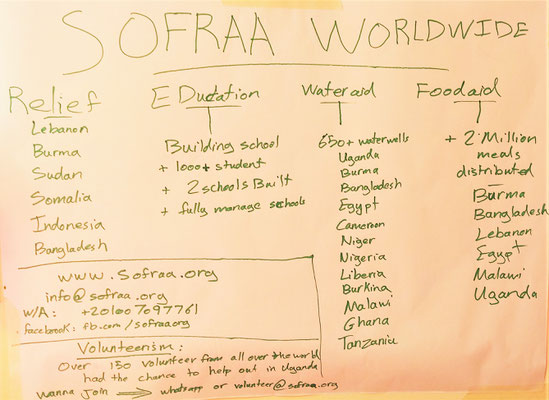 SOFRAA WORLDWIDE
Relief
Lebanon
Burma
Sudan
Somalia
Indonesia
Bangladesh
EDucation
Building school
+ 1000+ student
+ 2 schools Built
+ fully manage schools
Water aid
650+ waterwells
Uganda
Burma
Bangladesh
Egypt
Cameroon
Niger
Nigeria
Liberia
Burkina
Malawi
Ghana
Tanzania
Food aid
+ 2 Million
meals
distributed
Burma
Bangladesh
Lebanon
Egypt
Malawi
Uganda
www.sofraa.org
info@sofraa.org
W/A: +201007097761
facebook: fb.com/sofraaorg
Volunteerism:
Over 150 volunteer from all over the world
had the chance to help out in Uganda
wanna Join ⟹ whatsapp or volunteer@sofraa.org